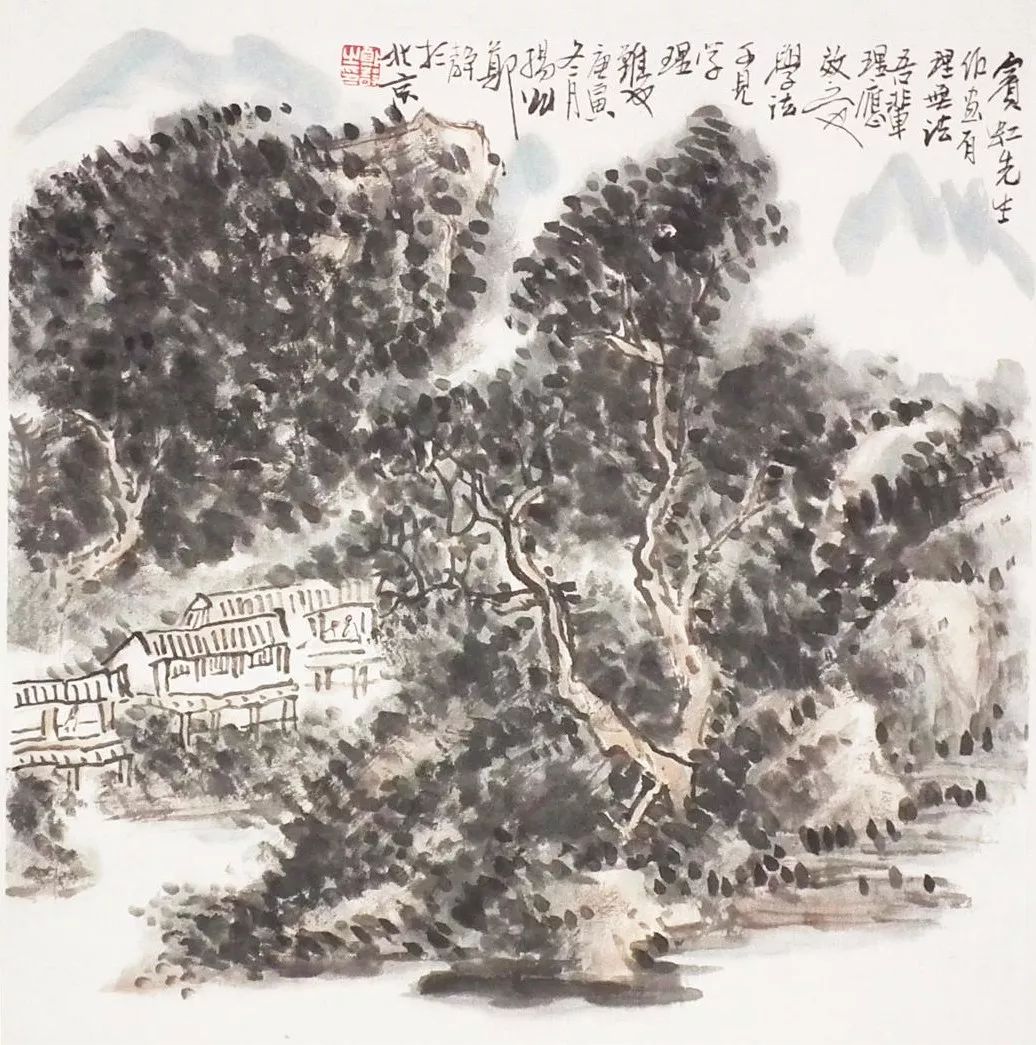 賓虹先生
作画有
理無法
吾輩
理應
效之
學法
不見
学
理
難
庚寅
冬月
揚州
鄭
静
於
北京